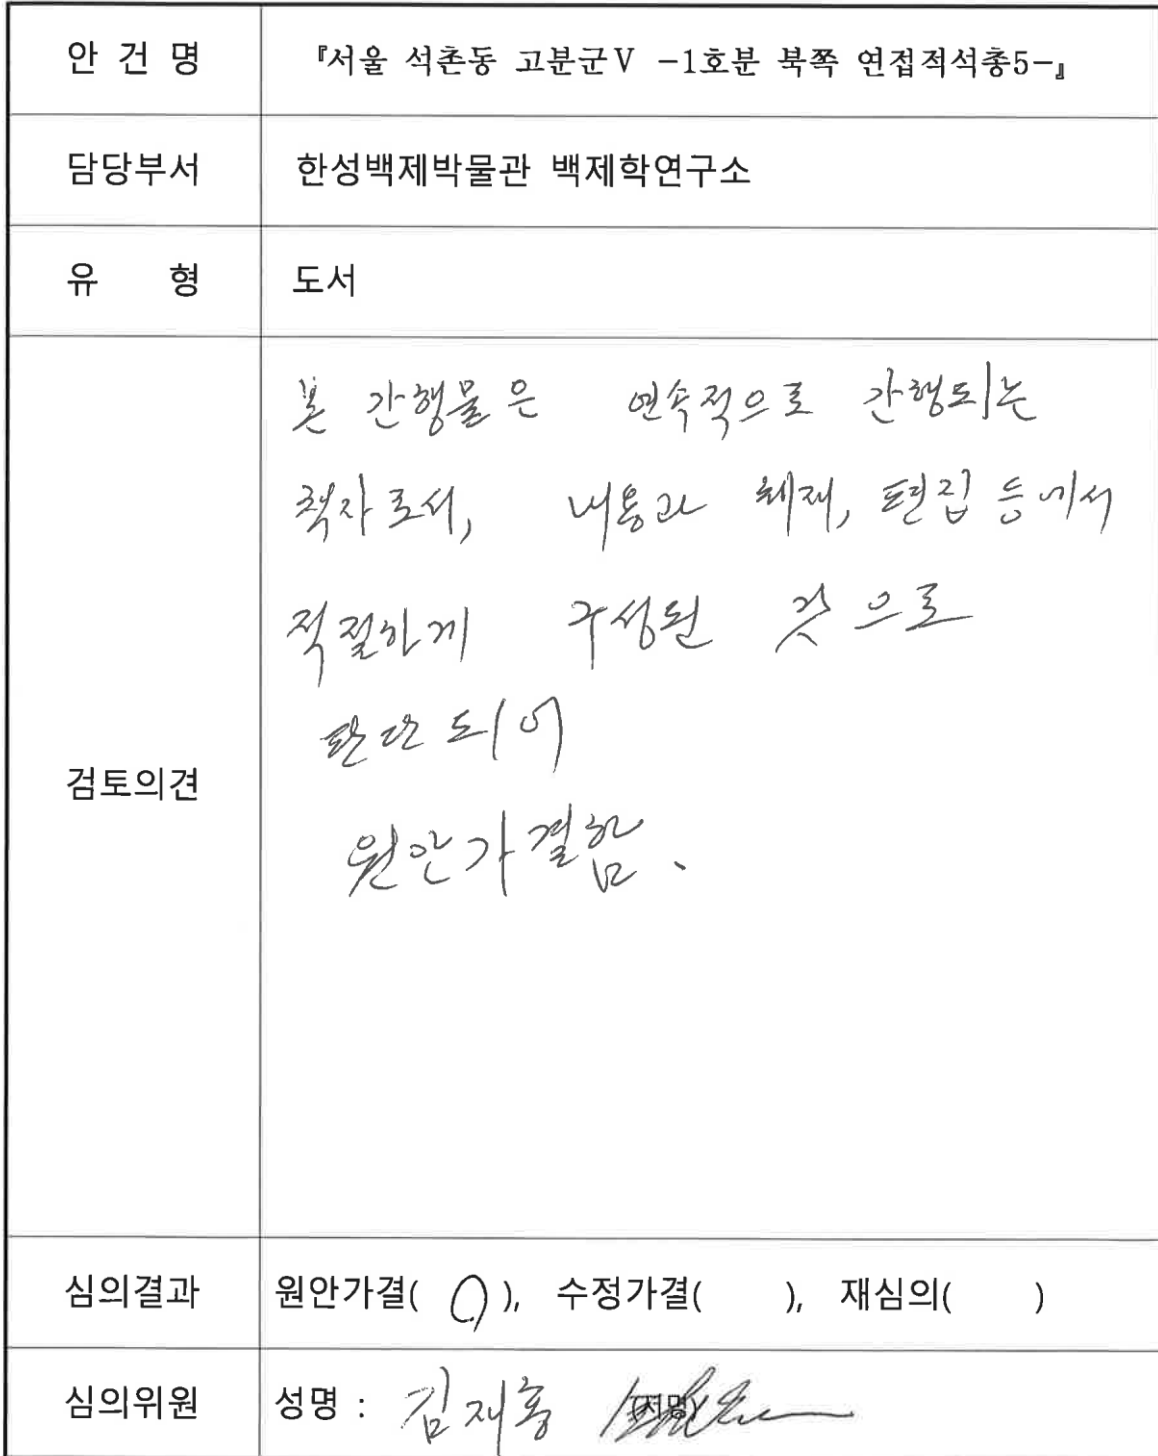 안 건 명 『서울 석촌동 고분군Ⅴ -1호분 북쪽 연접적석총5-』
담당부서 한성백제박물관 백제학연구소
유 형 도서
검토의견
본 간행물은 연속적으로 간행되는
책자로서, 내용과 체재, 편집 등에서
적절하게 구성된 것으로
판단되어
원안가결함.
심의결과 원안가결( O ), 수정가결( ), 재심의( )
심의위원 성명 : 김재홍 (서명)